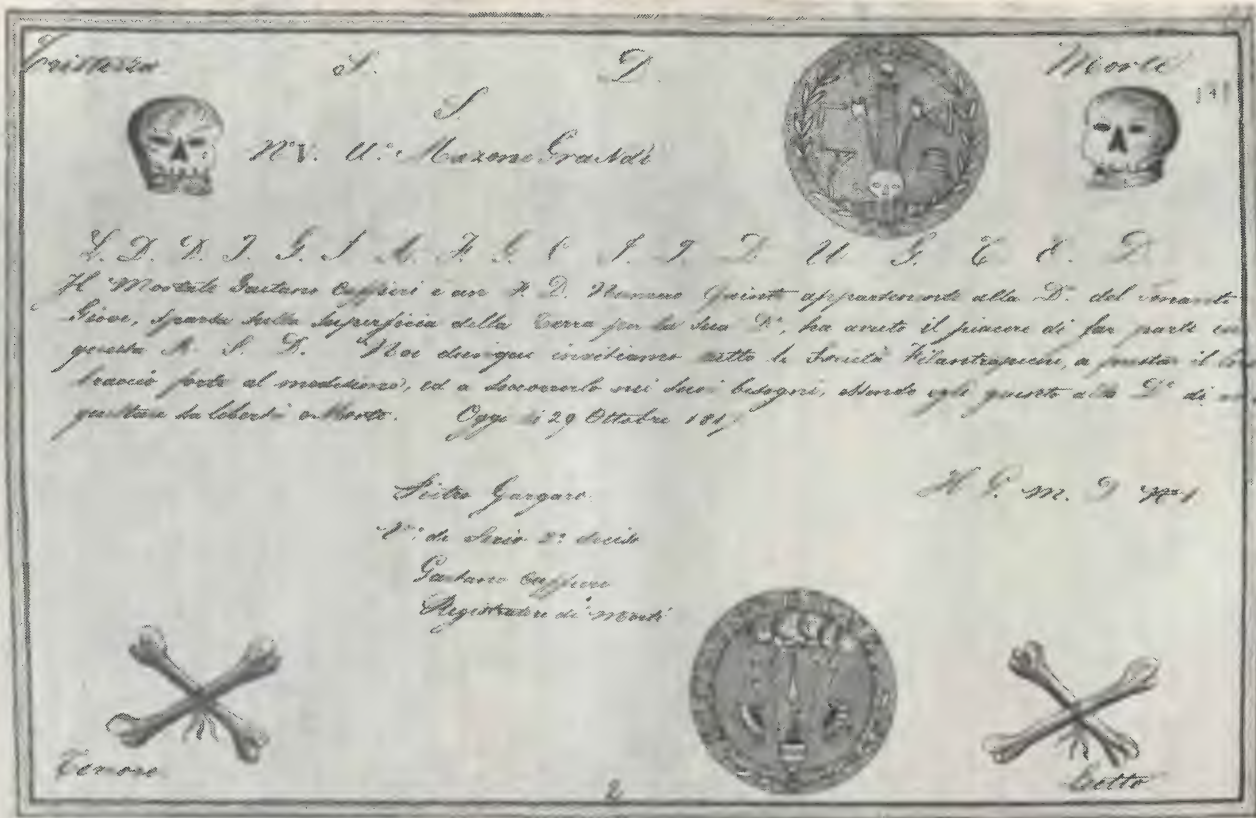 Tristezza S. D. Morte
S.
N. V. U.° Mazone Grandi
L. D. D. T. G. S. A. F. G. C. I. T. D. U. G. T. E. D
Il Mortale Gaetano Caffieri è un F. D. Numero Quinto appartenente alla D.ª del Tonante
Giove, sparsa sulla Superficia della Terra per la sua D.ª, ha avuto il piacere di far parte in
questa R. S. D. Noi dunque invitiamo tutte le Società Filantropiche, a prestar il
braccio forte al medesimo, ed a soccorrerlo nei suoi bisogni, essendo egli giunto alla D.ª di
quistare la libertà o Morte. Oggi li 29 Ottobre 1817
Pietro Gargaro H. G. M. D N° 1
di Serio 2° deciso
Gaetano Caffieri
Registratore di Morti
Terrore Lutto
2